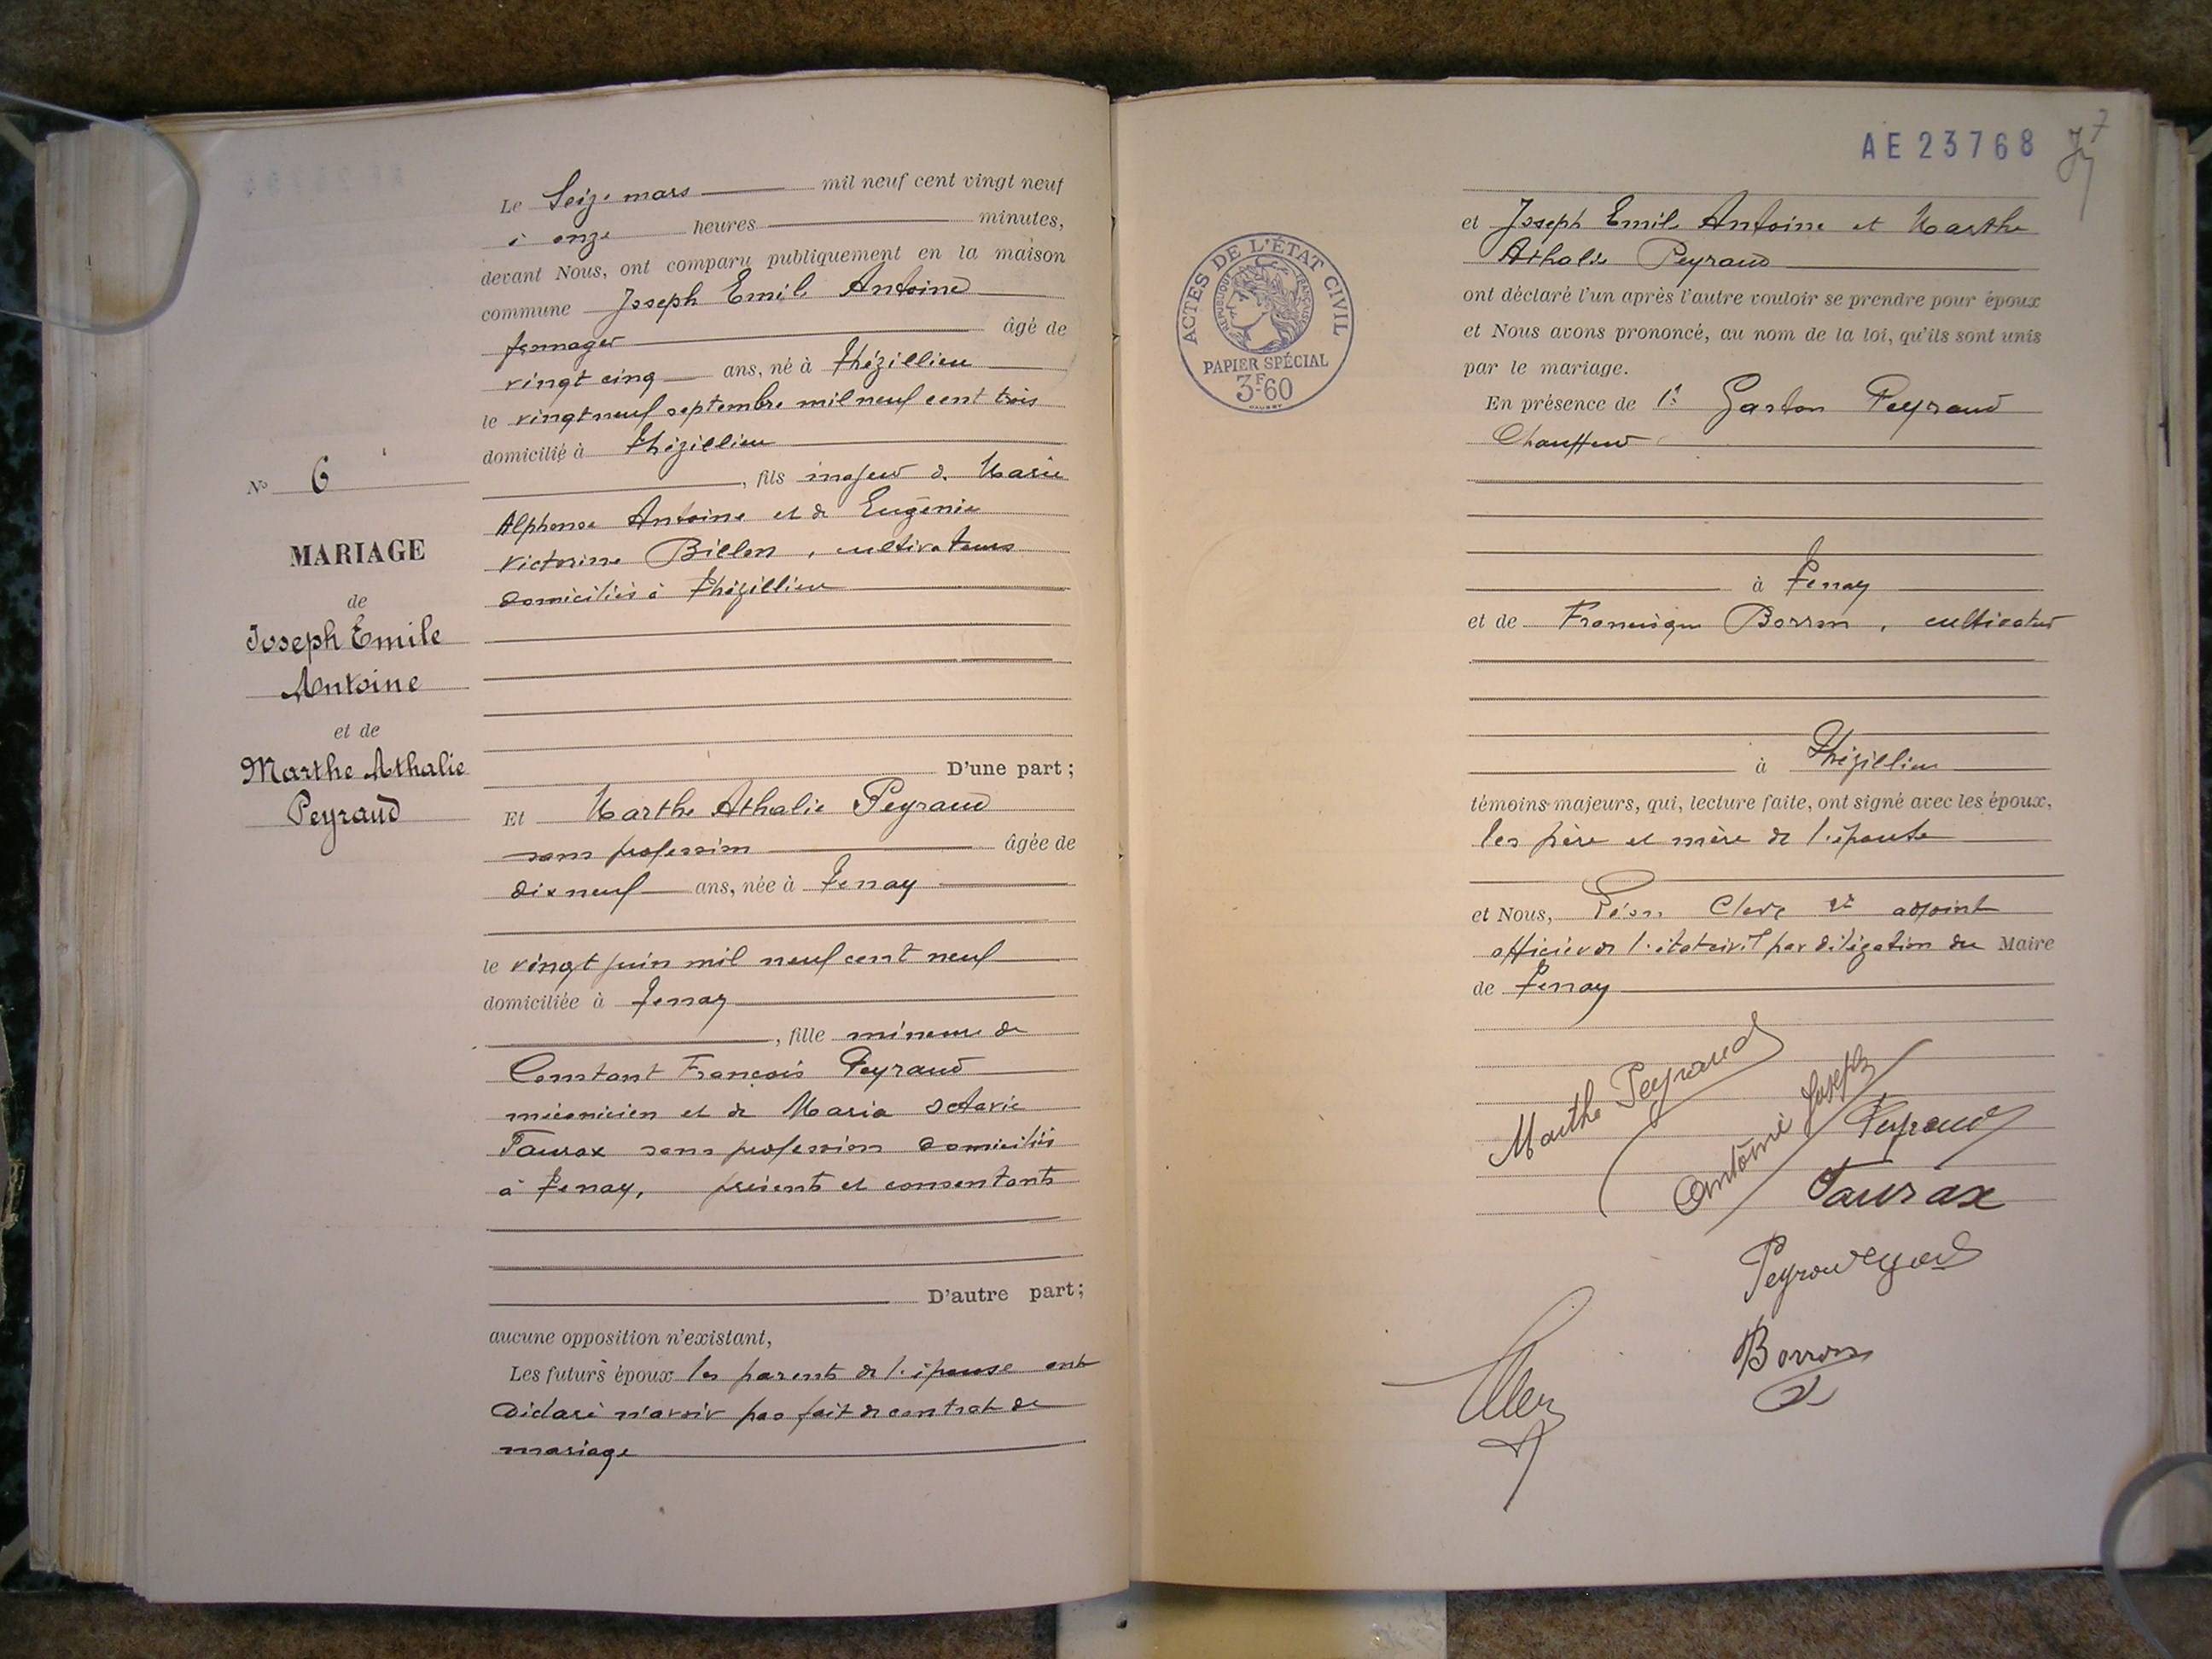 N° 6
MARIAGE
de
Joseph Emile
Antoine
et de
Marthe Athalie
Peyraud
Le Seize mars mil neuf cent vingt neuf
à onze heures minutes,
devant Nous, ont comparu publiquement en la maison
commune Joseph Emile Antoine
âgé de
vingt cinq ans, né à Thézillieu
le vingt neuf septembre mil neuf cent trois
domicilié à Thézillieu
, fils majeur de Marie
Alphonse Antoine et de Eugénie
Victorine Billon, cultivateurs
domiciliés à Thézillieu
D'une part;
Et Marthe Athalie Peyraud
sans profession âgée de
dix neuf ans, née à Tenay
le vingt juin mil neuf cent neuf
domiciliée à Tenay
, fille mineure de
Constant François Peyraud
mécanicien et de Maria Octavie
Taurax sans profession domiciliés
à Tenay, présents et consentants
D'autre part;
aucune opposition n'existant,
Les futurs époux les parents de l'épouse ont
déclaré n'avoir pas fait de contrat de
mariage
AE23768
7
ACTES DE L'ÉTAT CIVIL
RÉPUBLIQUE FRANÇAISE
PAPIER SPÉCIAL
3F60
et Joseph Emile Antoine et Marthe
Athalie Peyraud
ont déclaré l'un après l'autre vouloir se prendre pour époux
et Nous avons prononcé, au nom de la loi, qu'ils sont unis
par le mariage.
En présence de 1° Gaston Peyraud
Chauffeur
à Tenay
et de Francisque Borron, cultivateur
à Thézillieu
témoins majeurs, qui, lecture faite, ont signé avec les époux,
les père et mère de l'épouse
et Nous, Léon Clerc adjoint
officier de l'état civil par délégation du Maire
de Tenay
Marthe Peyraud
Antoine Joseph
Peyraud
Taurax
Borron